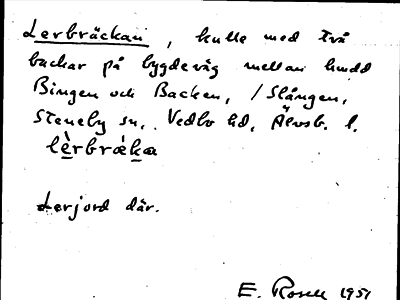 Lerbräckan, kulle med två
backar på bygdeväg mellan hmdd
Bingen och Backen, /Slången,
Steneby sn, Vedbo hd, Älvsb. l.
lèrbrǽka
Lerjord där.
E. Rosell 1951